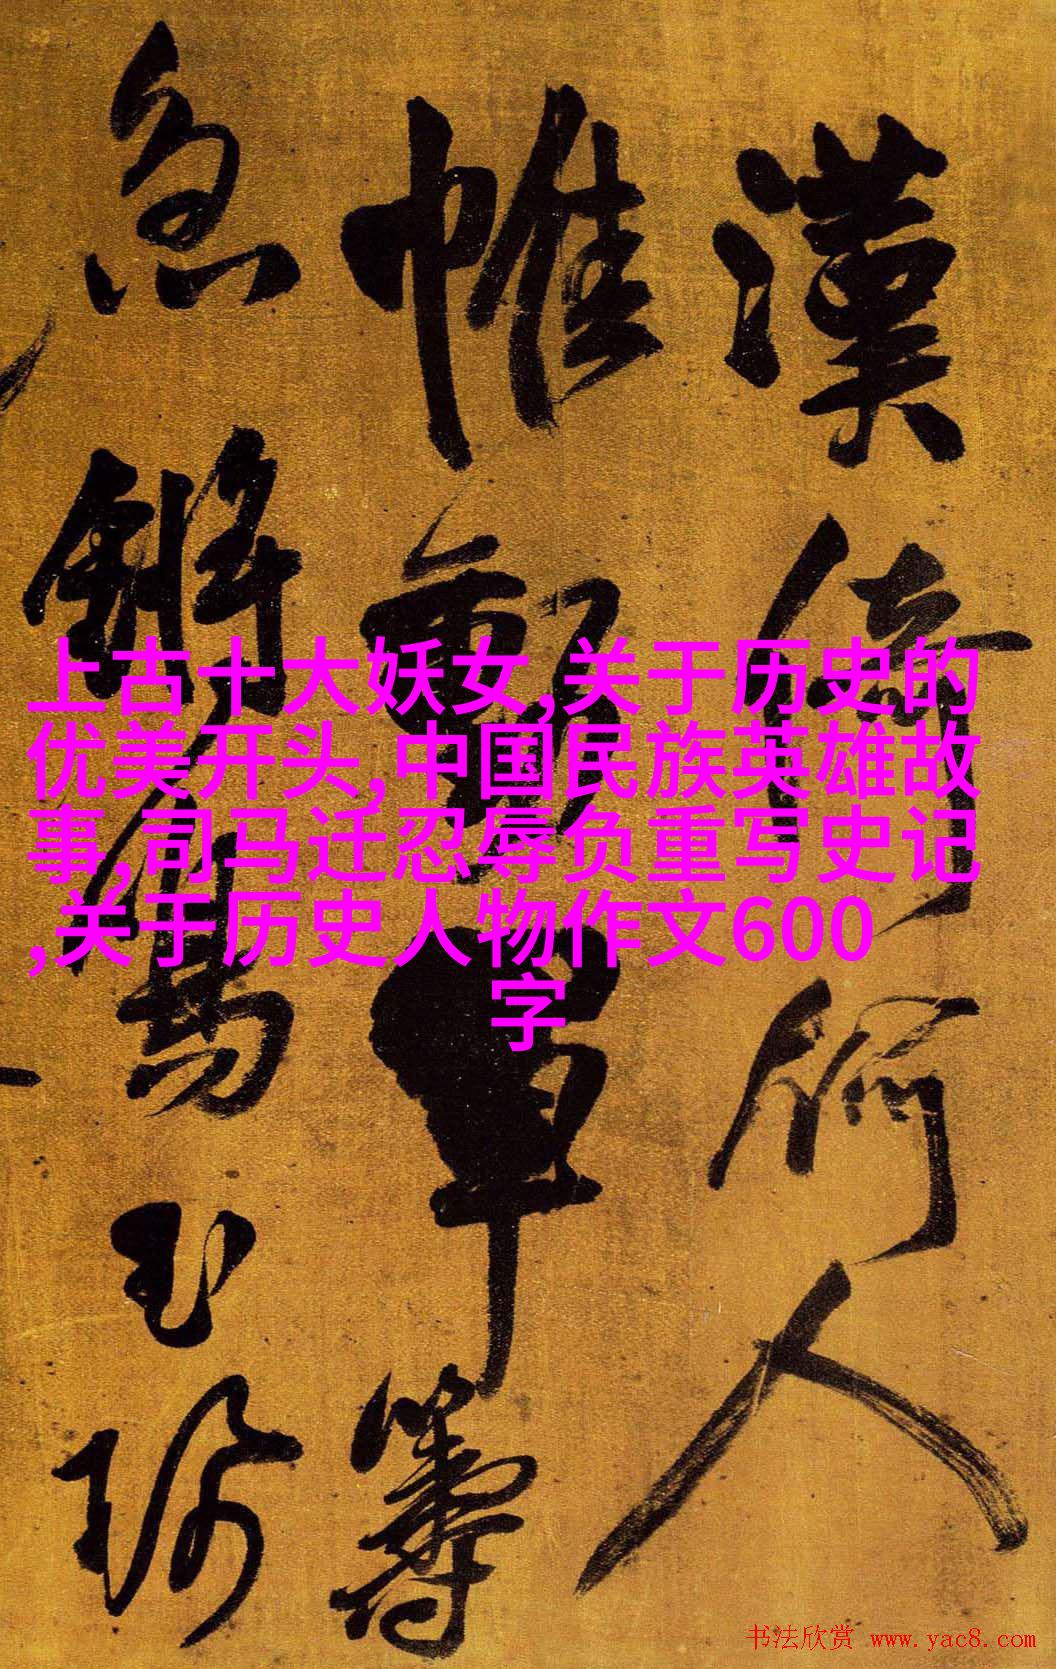 上古十大妖女,关于历史的
优美开头,中国民族英雄故
事,司马迁忍辱负重写史记
,关于历史人物作文600
字
漢倚何人
帷籌
忽鏘玉珂
书法欣赏 www.yac8.com